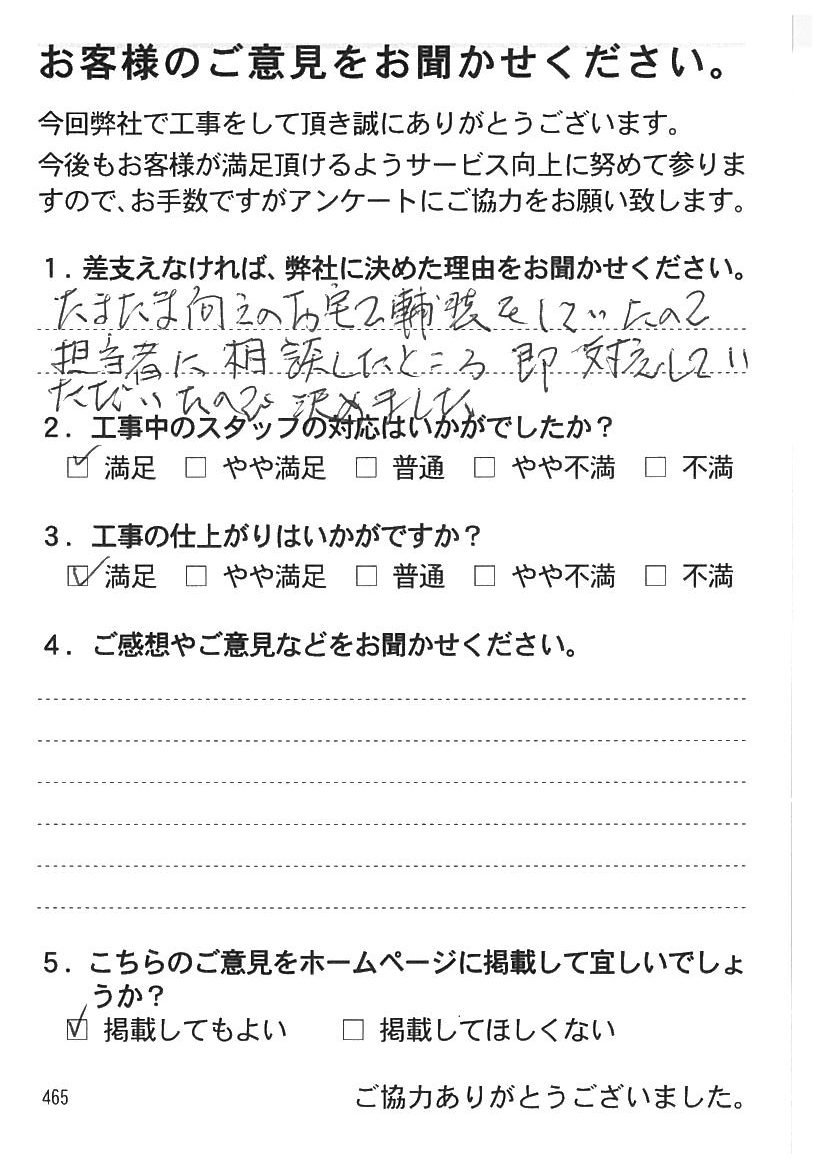 お客様のご意見をお聞かせください。
今回弊社で工事をして頂き誠にありがとうございます。
今後もお客様が満足頂けるようサービス向上に努めて参りま
すので、お手数ですがアンケートにご協力をお願い致します。
1．差支えなければ、弊社に決めた理由をお聞かせください。
たまたま向えのお宅で輔装をしていたので
担当者に相談したところ即対応してい
ただいたので決めました
2．工事中のスタッフの対応はいかがでしたか？
☑ 満足 □ やや満足 □ 普通 □ やや不満 □ 不満
3．工事の仕上がりはいかがですか？
☑ 満足 □ やや満足 □ 普通 □ やや不満 □ 不満
4．ご感想やご意見などをお聞かせください。
5．こちらのご意見をホームページに掲載して宜しいでしょ
うか？
☑ 掲載してもよい □ 掲載してほしくない
465 ご協力ありがとうございました。